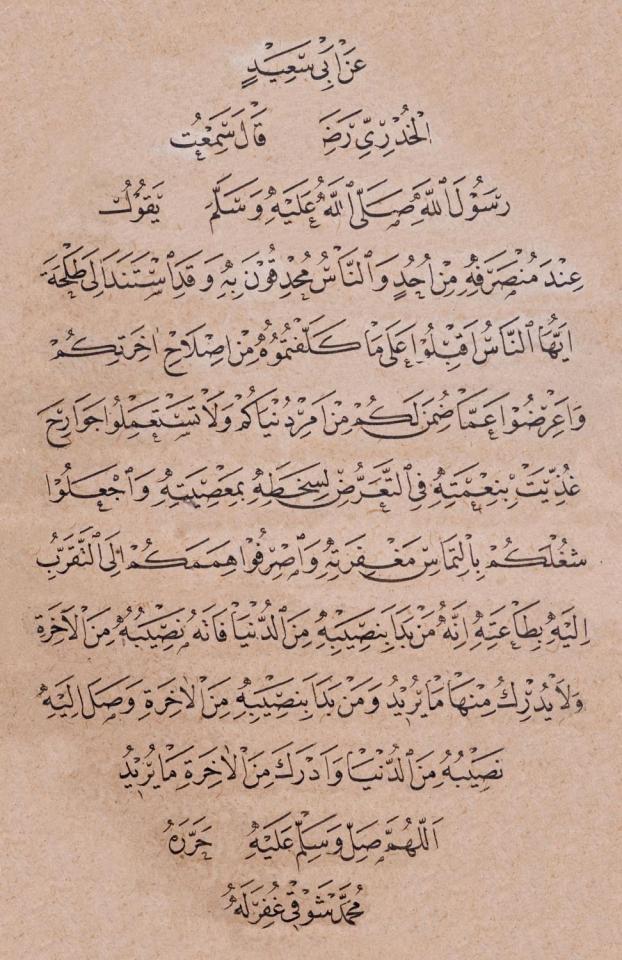 عَنْ اَبِي سَعِيدٍ
الْخُدْرِيِّ رَضَ قَالَ سَمِعْتُ
رَسُولَ اللّٰهِ صَلَّى اللّٰهُ عَلَيْهِ وَسَلَّمَ يَقُولُ
عِنْدَ مُنْصَرَفِهِ مِنْ اُحُدٍ وَالنَّاسُ مُحْدِقُونَ بِهِ وَقَدِ اسْتَنَدَ اِلَى طَلْحَةَ
اَيُّهَا النَّاسُ اَقْبِلُوا عَلَى مَا كَلَّفْتُمُوهُ مِنْ اِصْلَاحِ اٰخِرَتِكُمْ
وَاَعْرِضُوا عَمَّا ضُمِنَ لَكُمْ مِنْ اَمْرِ دُنْيَاكُمْ وَلَا تَسْتَعْمِلُوا جَوَارِحَ
غُذِّيَتْ بِنِعْمَتِهِ فِي التَّعَرُّضِ لِسَخَطِهِ بِمَعْصِيَتِهِ وَاجْعَلُوا
شُغْلَكُمْ بِالْتِمَاسِ مَغْفِرَتِهِ وَاصْرِفُوا هِمَمَكُمْ اِلَى التَّقَرُّبِ
اِلَيْهِ بِطَاعَتِهِ اِنَّهُ مَنْ بَدَاَ بِنَصِيبِهِ مِنَ الدُّنْيَا فَاتَهُ نَصِيبُهُ مِنَ الْاٰخِرَةِ
وَلَا يُدْرِكُ مِنْهَا مَا يُرِيدُ وَمَنْ بَدَاَ بِنَصِيبِهِ مِنَ الْاٰخِرَةِ وَصَلَ اِلَيْهِ
نَصِيبُهُ مِنَ الدُّنْيَا وَاَدْرَكَ مِنَ الْاٰخِرَةِ مَا يُرِيدُ
اَللّٰهُمَّ صَلِّ وَسَلِّمْ عَلَيْهِ حَرَّرَهُ
مُحَمَّد شَوْقِي غُفِرَ لَهُ